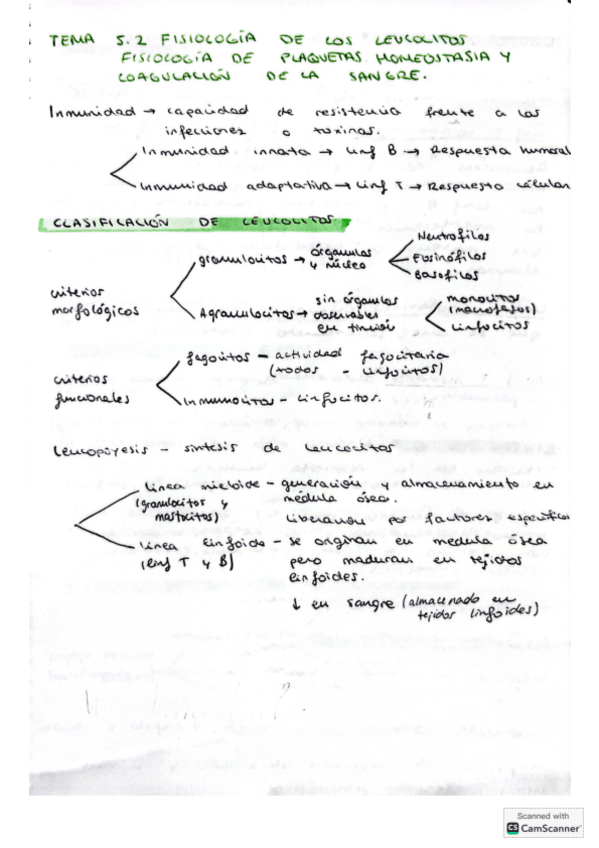 TEMA 5.2 FISIOLOGÍA DE LOS LEUCOLITOS
FISIOLOGÍA DE PLAQUETAS. HOMEOSTASIA Y
COAGULACIÓN DE LA SANGRE.
Inmunidad → capacidad de resistencia frente a las
infecciones o toxinas.
Inmunidad innata → Linf B → Respuesta humoral
Inmunidad adaptativa → Linf T → Respuesta célular
CLASIFICACIÓN DE LEUCOLITOS
criterios morfológicos
granulocitos → órganulos y núcleo
Neutrofilos
Eosinófilos
Basofilos
Agranulocitos → sin órganulos observables en tinción
monocitos (macrofagos)
Linfocitos
criterios funcionales
fagocitos - actividad fagocitaria
(todos - linfocitos)
Inmunocitos - linfocitos.
Leucopoyesis - sintesis de leucocitos
Linea mieloide - generación y almacenamiento en
(granulocitos y mastocitos)
médula ósea.
Liberación por factores específicos
Línea linfoide - se originan en medula ósea
(linf T y B)
pero maduran en tejidos
linfoides.
↓ en sangre (almacenado en
tejidos linfoides)
Scanned with
CS CamScanner